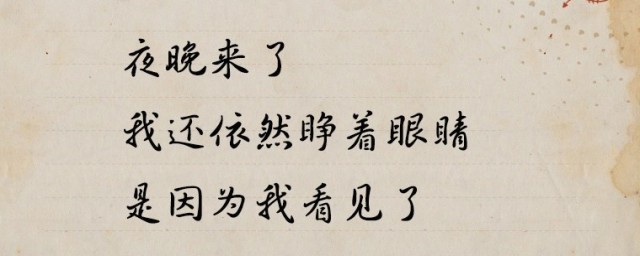 夜晚来了
我还依然睁着眼睛
是因为我看见了